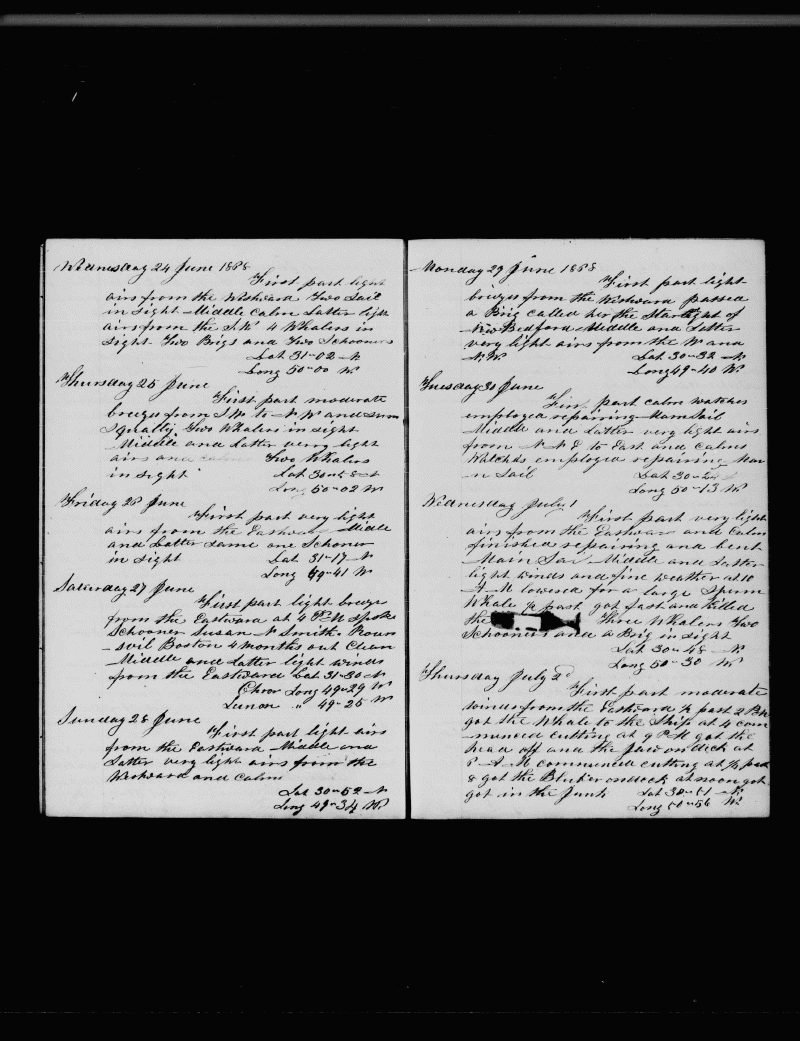 Wednesday 24 June 1868
First part light
airs from the Westward Two Sail
in Sight Middle Calm Latter light
airs from the S.W 4 Whalers in
sight Two Brigs and Two Schooners
Lat 31-02 N
Long 50-00 W
Thursday 25 June
First part moderate
breezes from S.W. to N W and
Squally, Two Whalers in sight
Middle and Latter very light
airs and calms Two Whalers
in sight Lat
Long 50-02 W
Friday 26 June
First part very light
airs from the Eastward Middle
and Latter same one Schoner
in sight Lat 31-17 N
Long 49-41 W
Saturday 27 June
First part light breeze
from the Eastward at 4 P M spoke
Schooner Susan N Smith Provin
soil Boston 4 months out Clean
Middle and Latter light winds
from the Eastward Lat 31-30 N
Chron Long 49-29 W
Lunar " 49-25 W
Sunday 28 June
First part light airs
from the Eastward Middle and
Latter very light airs from the
Westward and Calm
Lat 30-52 N
Long 49-34 W
Monday 29 June 1868
First part light
breezes from the Westward passed
a Brig called her the Starlight of
New Bedford Middle and Latter
very light airs from the W and
N.W Lat 30-32 N
Long 49-40 W
Tuesday 30 June
First part calm watches
employed repairing Main Sail
Middle and Latter very light airs
from N N E to East and Calms
Watches employed repairing Mai
n Sail Lat
Long 50-13 W
Wednesday July 1
First part very light
airs from the Eastward and Calm
finished repairing and bent
Main Sail Middle and Latter
light winds and fine weather at 10
A M lowered for a large Sperm
Whale ½ past got fast and killed
the Three Whalers Two
Schooners and a Brig in sight
Lat 30-48 N
Long 50-30 W
Thursday July 2d
First part moderate
winds from the Eastward ½ past 2 PM
got the Whale to the Ship at 4 com
-menced cutting at 9 P M got the
head off and the jaw on deck at
A M commenced cutting at ½ past
8 got the Blubber on deck at noon got
got in the Junk Lat 30-51 N
Long 50-56 W